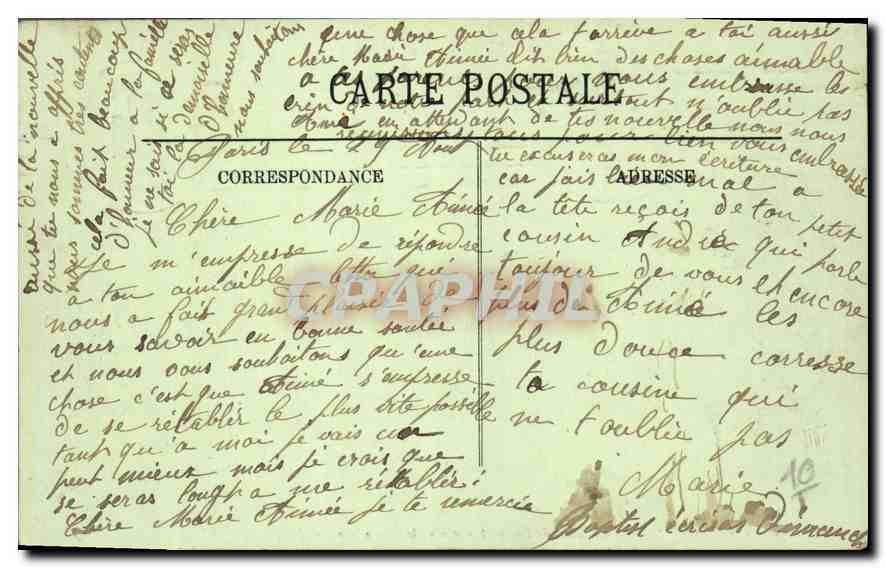 CARTE POSTALE
CORRESPONDANCE
ADRESSE
Paris le 29 Aout
Chère Marie Aimée
Je m'empresse de répondre
a ton aimaible lettre qui
nous a fait grand plaisir de
vous savoir en bonne santée
et nous vous souhaitons qu'une
chose c'est que Aimé s'empresse
de se rétablér le plus vite possible
tant qu'a moi je vais un
peut mieux mais je crois que
se seras long pa me rétablér
Chère Marie Aimée je te remercie
aussi de la nouvelle
que tu nous a appris
nous sommes très contents
cela fait beaucoup
d'honneur a la famille
je ne sais si ce seras
toi la demoiselle
d'honneure
nous souhaitons
qune chose que cela t'arrive a toi aussi
chère Marie Aimée dit bien des choses aimable
a nous embrasse les
bien de notre part et surtout n'oublie pas
Aimé en attendant de tes nouvelle nous nous
réunissons tous pour bien vous embrasse
tu excuseras mon écriture
car jais le mal a
la tête reçois de ton petit
cousin André qui parle
toujour de vous et encore
plus de Aimée les
plus douce carresse
ta cousine qui
ne t'oublie pas
Marie
Baptist écrira Dimanche
10
CPAPHIL